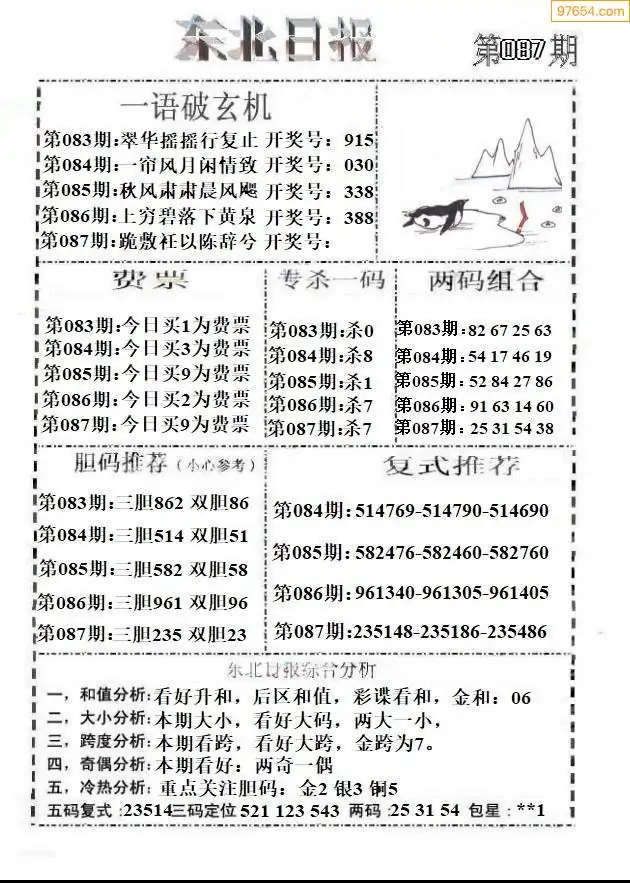 97654.com
东北日报 第087期
一语破玄机
第083期:翠华摇摇行复止 开奖号：915
第084期:一帘风月闲情致 开奖号：030
第085期:秋风肃肃晨风飔 开奖号：338
第086期:上穷碧落下黄泉 开奖号：388
第087期:跪敷衽以陈辞兮 开奖号：
费票
第083期:今日买1为费票
第084期:今日买3为费票
第085期:今日买9为费票
第086期:今日买2为费票
第087期:今日买9为费票
专杀一码
第083期:杀0
第084期:杀8
第085期:杀1
第086期:杀7
第087期:杀7
两码组合
第083期:82 67 25 63
第084期:54 17 46 19
第085期:52 84 27 86
第086期:91 63 14 60
第087期:25 31 54 38
胆码推荐（小心参考）
第083期:三胆862 双胆86
第084期:三胆514 双胆51
第085期:三胆582 双胆58
第086期:三胆961 双胆96
第087期:三胆235 双胆23
复式推荐
第084期:514769-514790-514690
第085期:582476-582460-582760
第086期:961340-961305-961405
第087期:235148-235186-235486
东北日报综合分析
一，和值分析:看好升和，后区和值，彩谍看和，金和：06
二，大小分析:本期大小，看好大码，两大一小，
三，跨度分析:本期看跨，看好大跨，金跨为7。
四，奇偶分析:本期看好：两奇一偶
五，冷热分析:重点关注胆码：金2 银3 铜5
五码复式:23514三码定位 521 123 543 两码:25 31 54 包星:**1